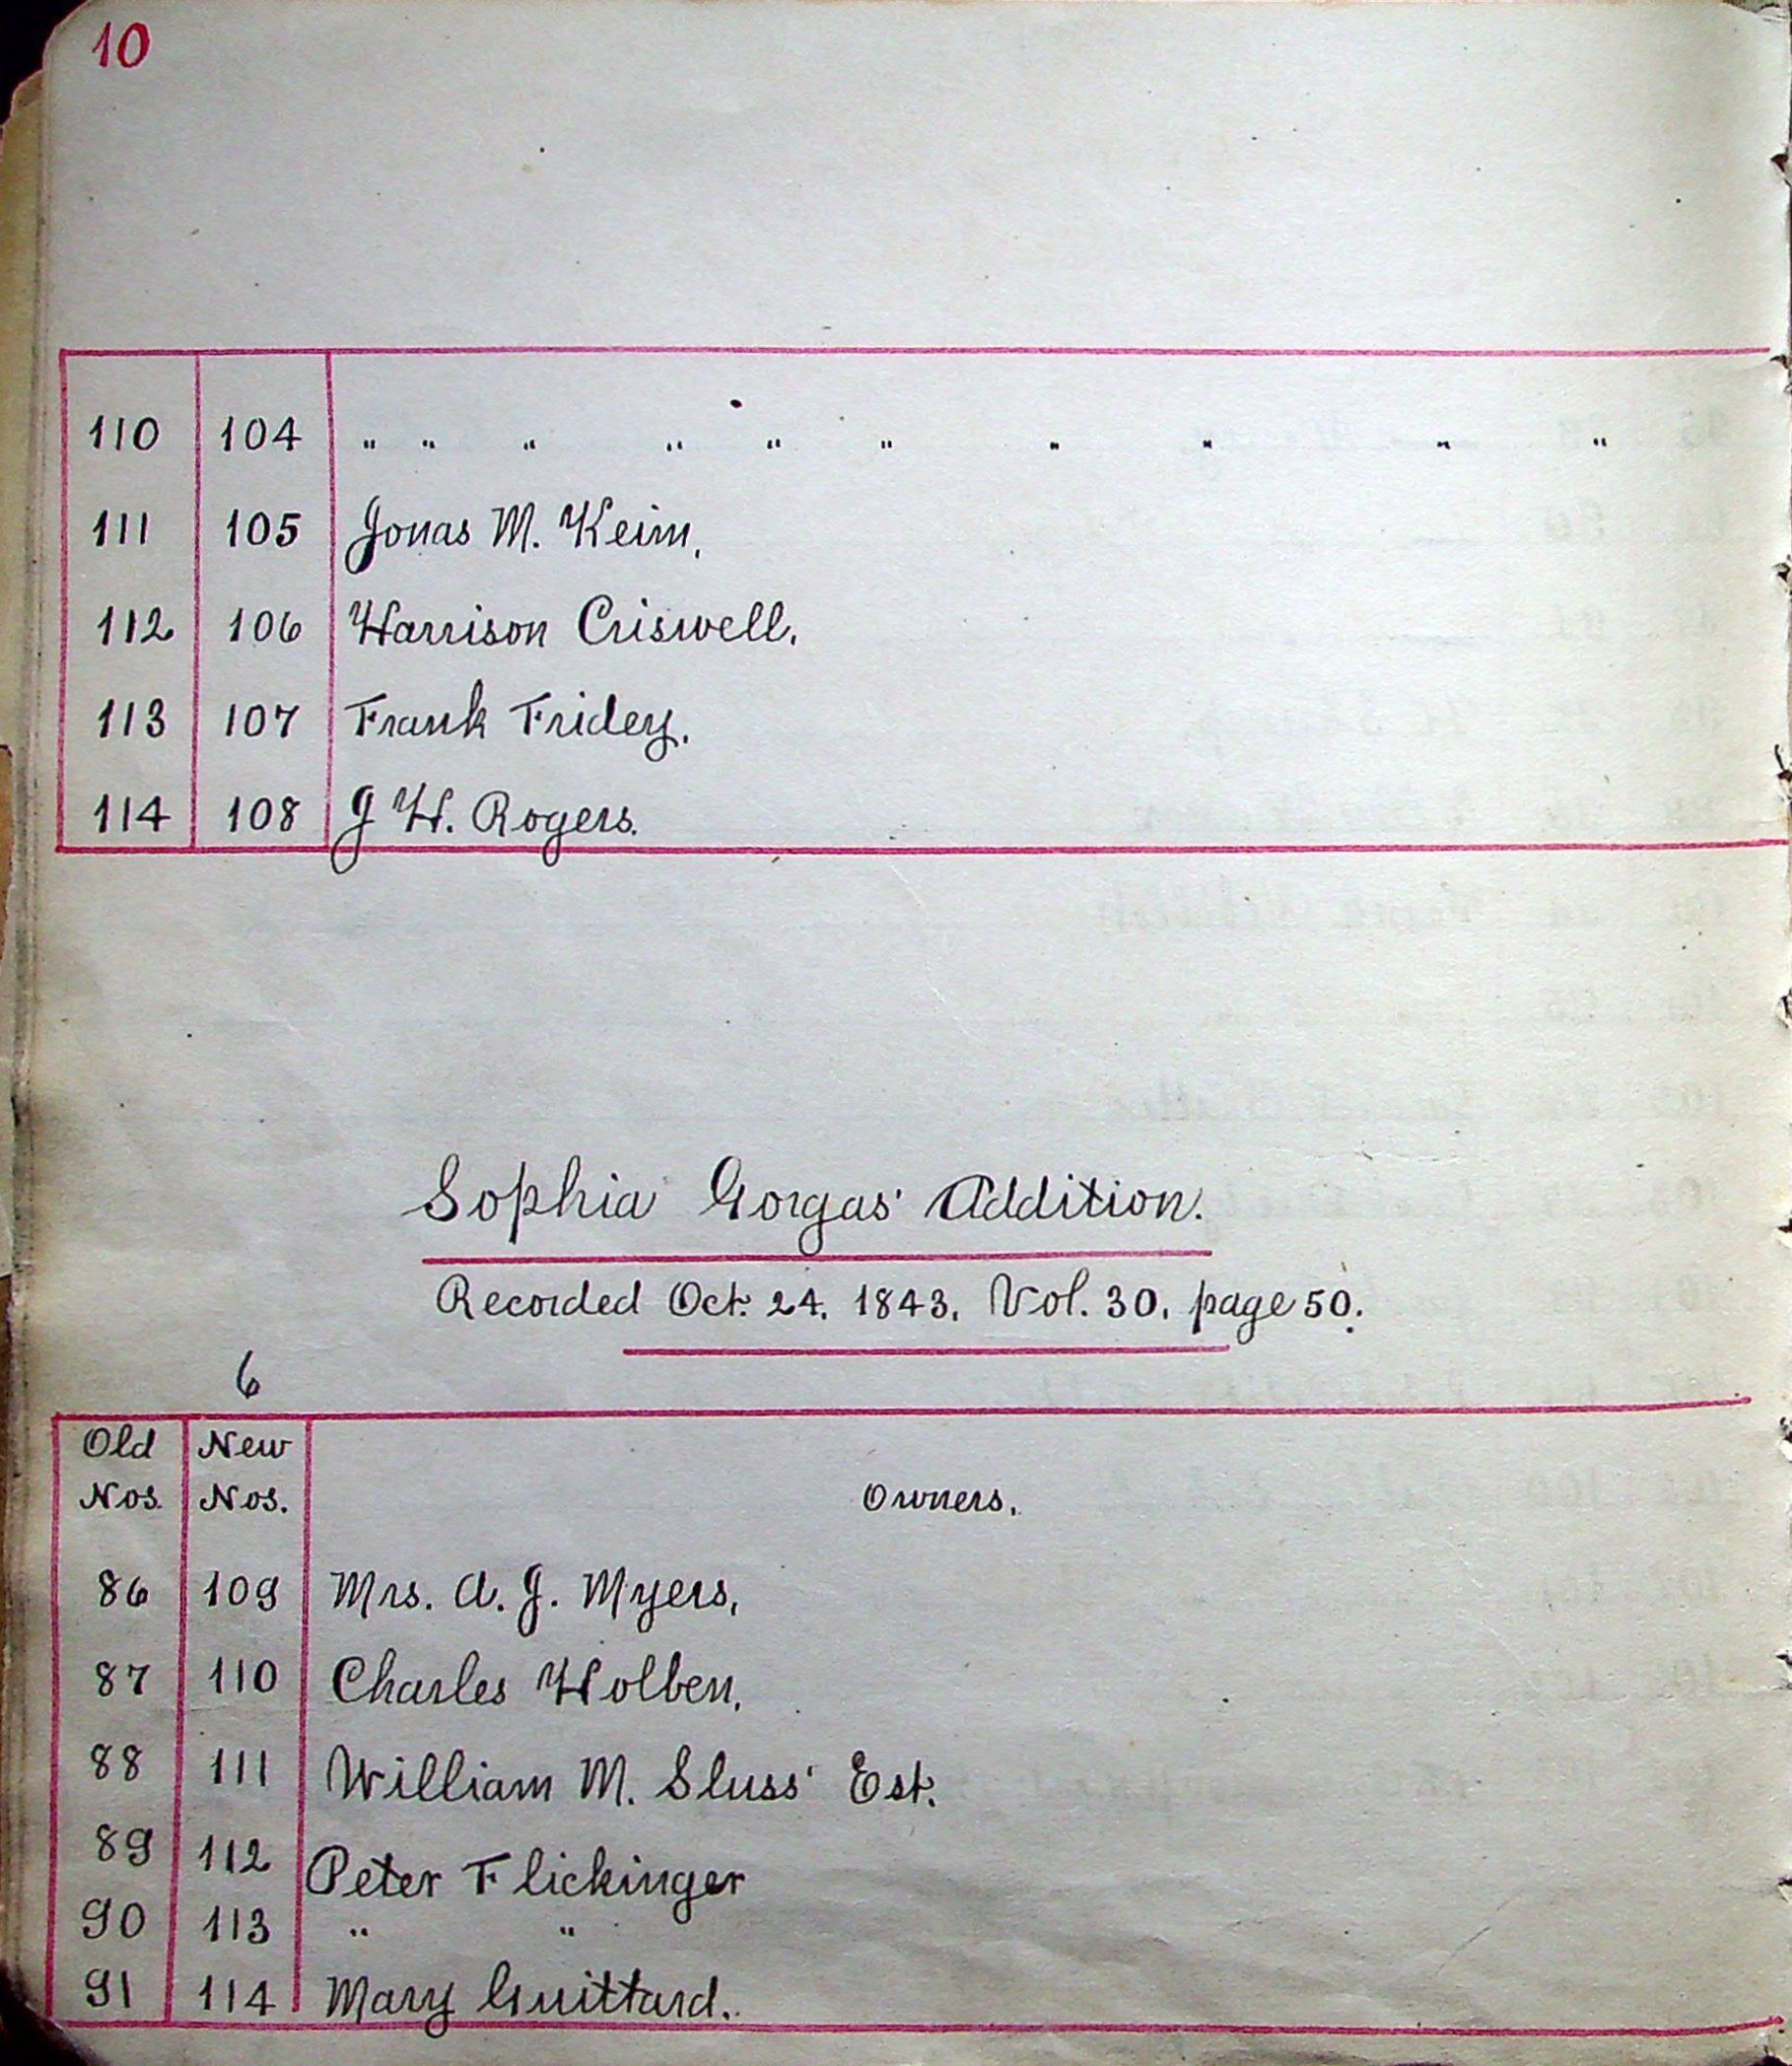 10
110 104 " " " " " " " " " "
111 105 Jonas M. Keim.
112 106 Harrison Criswell.
113 107 Frank Fridey.
114 108 J W. Rogers.
Sophia Gorgas' Addition.
Recorded Oct. 24. 1843. Vol. 30. page 50.
6
Old New
Nos. Nos. Owners.
86 109 Mrs. A. J. Myers.
87 110 Charles Holben.
88 111 William M. Sluss' Est.
89 112 Peter Flickinger
90 113 " "
91 114 Mary Guittard.